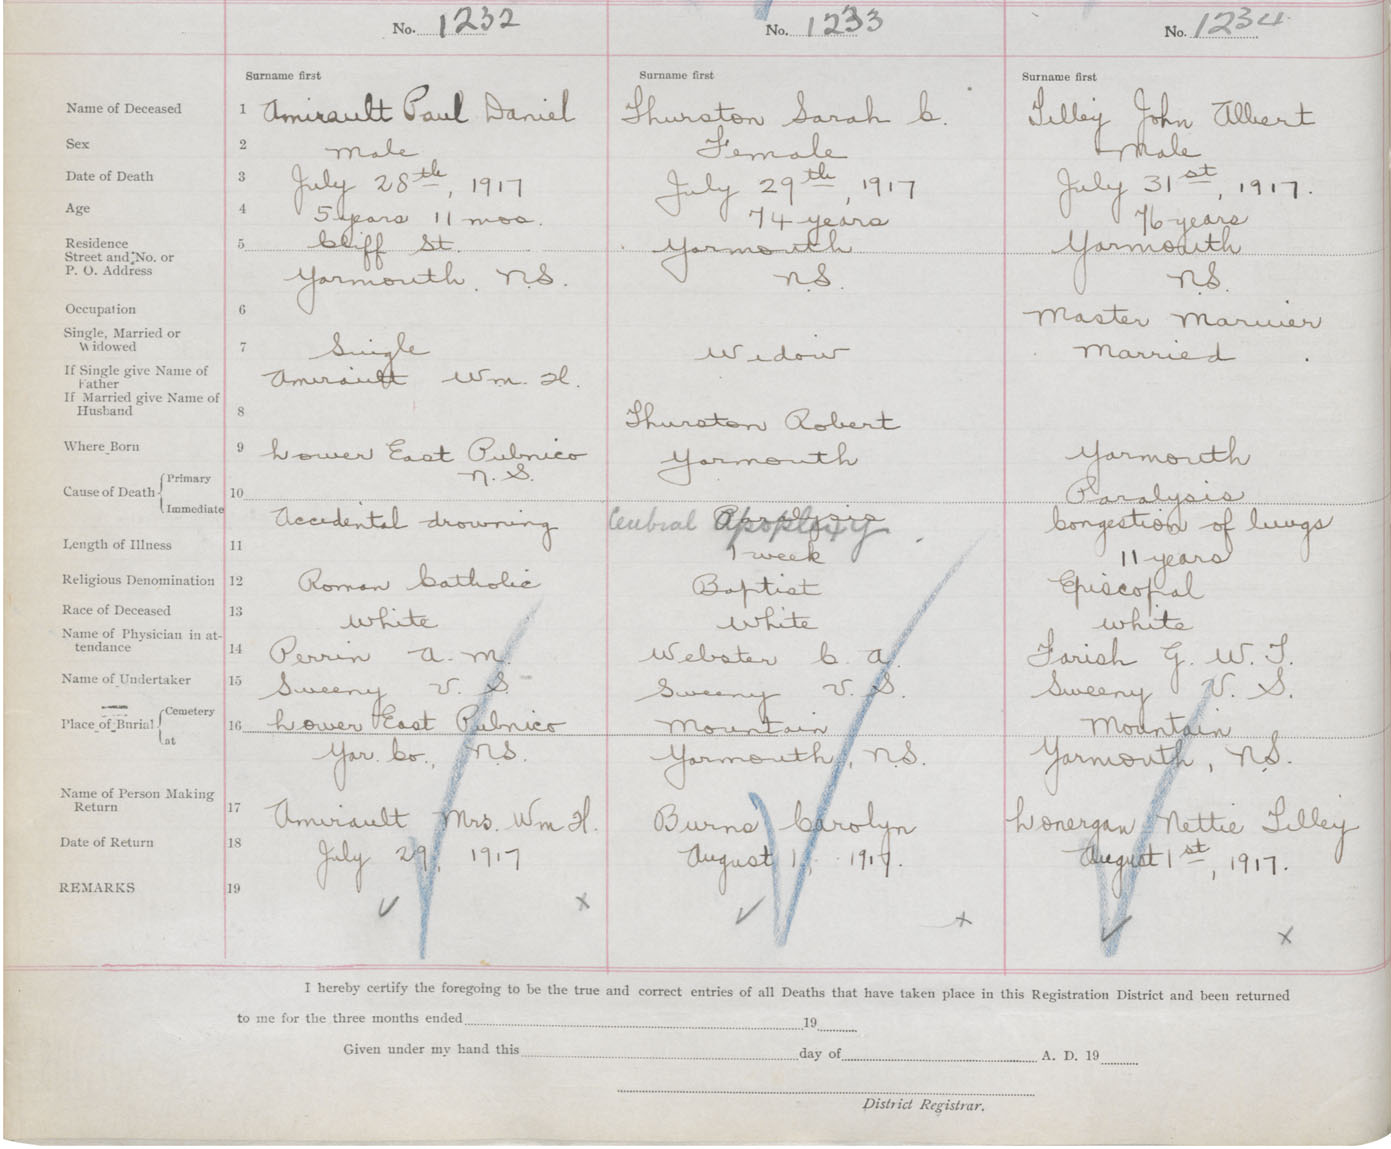 No. 1232 No. 1233 No. 1234
Surname first Surname first Surname first
Name of Deceased 1 Amirault Paul Daniel Thurston Sarah C. Lilley John Albert
Sex 2 male Female male
Date of Death 3 July 28th, 1917 July 29th, 1917 July 31st, 1917.
Age 4 5 years 11 mos. 74 years 76 years
Residence 5 Cliff St. Yarmouth Yarmouth
Street and No. or
P. O. Address Yarmouth, N.S. N.S. N.S.
Occupation 6 Master Marinier
Single, Married or
Widowed 7 Single Widow Married
If Single give Name of
Father Amirault Wm. H.
If Married give Name of
Husband 8 Thurston Robert
Where Born 9 Lower East Pubnico Yarmouth Yarmouth
N.S.
Cause of Death Primary 10 Paralysis
Immediate Accidental drowning Cerebral Apoplexy. Congestion of lungs
Length of Illness 11 1 week 11 years
Religious Denomination 12 Roman Catholic Baptist Episcopal
Race of Deceased 13 white white white
Name of Physician in at-
tendance 14 Perrin A. M. Webster C. A. Farish G. W. T.
Name of Undertaker 15 Sweeny V. S. Sweeny V. S. Sweeny V. S.
Place of Burial Cemetery 16 Lower East Pubnico Mountain Mountain
at Yar. Co., N.S. Yarmouth, N.S. Yarmouth, N.S.
Name of Person Making
Return 17 Amirault Mrs. Wm H. Burns Carolyn Lonergan Nettie Lilley
Date of Return 18 July 29, 1917 August 1, 1917. August 1st, 1917.
REMARKS 19
I hereby certify the foregoing to be the true and correct entries of all Deaths that have taken place in this Registration District and been returned
to me for the three months ended 19
Given under my hand this day of A. D. 19
District Registrar.